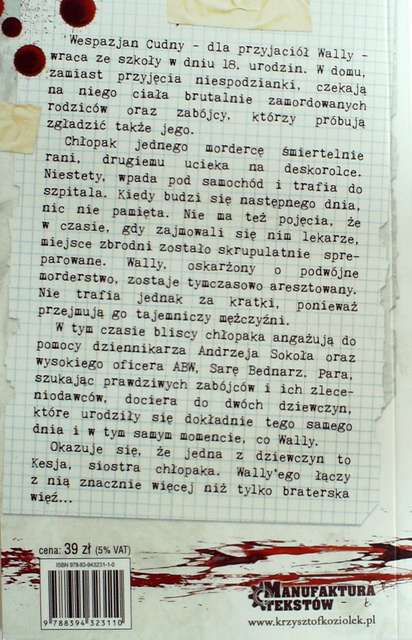 Wespazjan Cudny - dla przyjaciół Wally -
wraca ze szkoły w dniu 18. urodzin. W domu,
zamiast przyjęcia niespodzianki, czekają
na niego ciała brutalnie zamordowanych
rodziców oraz zabójcy, którzy próbują
zgładzić także jego.
Chłopak jednego mordercę śmiertelnie
rani, drugiemu ucieka na deskorolce.
Niestety, wpada pod samochód i trafia do
szpitala. Kiedy budzi się następnego dnia,
nic nie pamięta. Nie ma też pojęcia, że
w czasie, gdy zajmowali się nim lekarze,
miejsce zbrodni zostało skrupulatnie spre-
parowane. Wally, oskarżony o podwójne
morderstwo, zostaje tymczasowo aresztowany.
Nie trafia jednak za kratki, ponieważ
przejmują go tajemniczy mężczyźni.
W tym czasie bliscy chłopaka angażują do
pomocy dziennikarza Andrzeja Sokoła oraz
wysokiego oficera ABW, Sarę Bednarz. Para,
szukając prawdziwych zabójców i ich zlece-
niodawców, dociera do dwóch dziewczyn,
które urodziły się dokładnie tego samego
dnia i w tym samym momencie, co Wally.
Okazuje się, że jedna z dziewczyn to
Kesja, siostra chłopaka. Wally'ego łączy
z nią znacznie więcej niż tylko braterska
więź...
cena: 39 zł (5% VAT)
ISBN 978-83-943231-1-0
9 788394 323110
MANUFAKTURA
TEKSTÓW
www.krzysztofkoziolek.pl